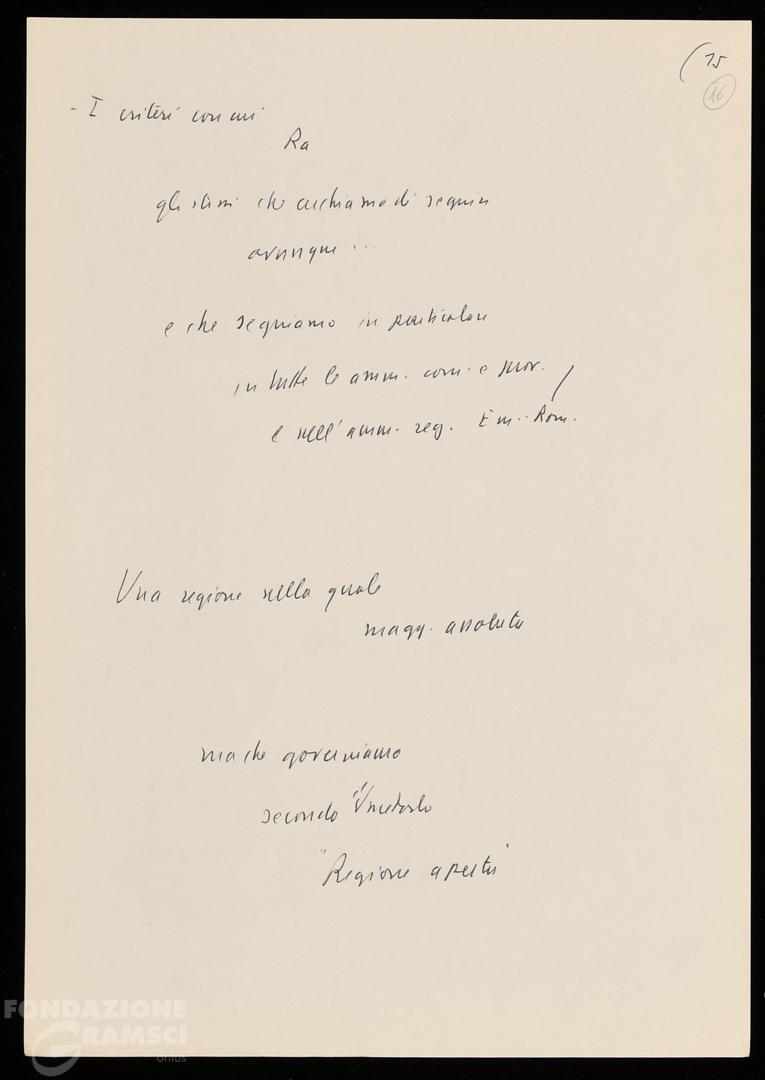 (15
16
- I criteri con cui
Ra
gli stessi che cerchiamo di seguire
ovunque ...
e che seguiamo in particolare
in tutte le amm. com. e prov.
e nell'amm. reg. Em.-Rom.
Una regione nella quale
magg. assoluta
ma che governiamo
secondo il metodo
"Regione aperta"
FONDAZIONE
GRAMSCI
onlus